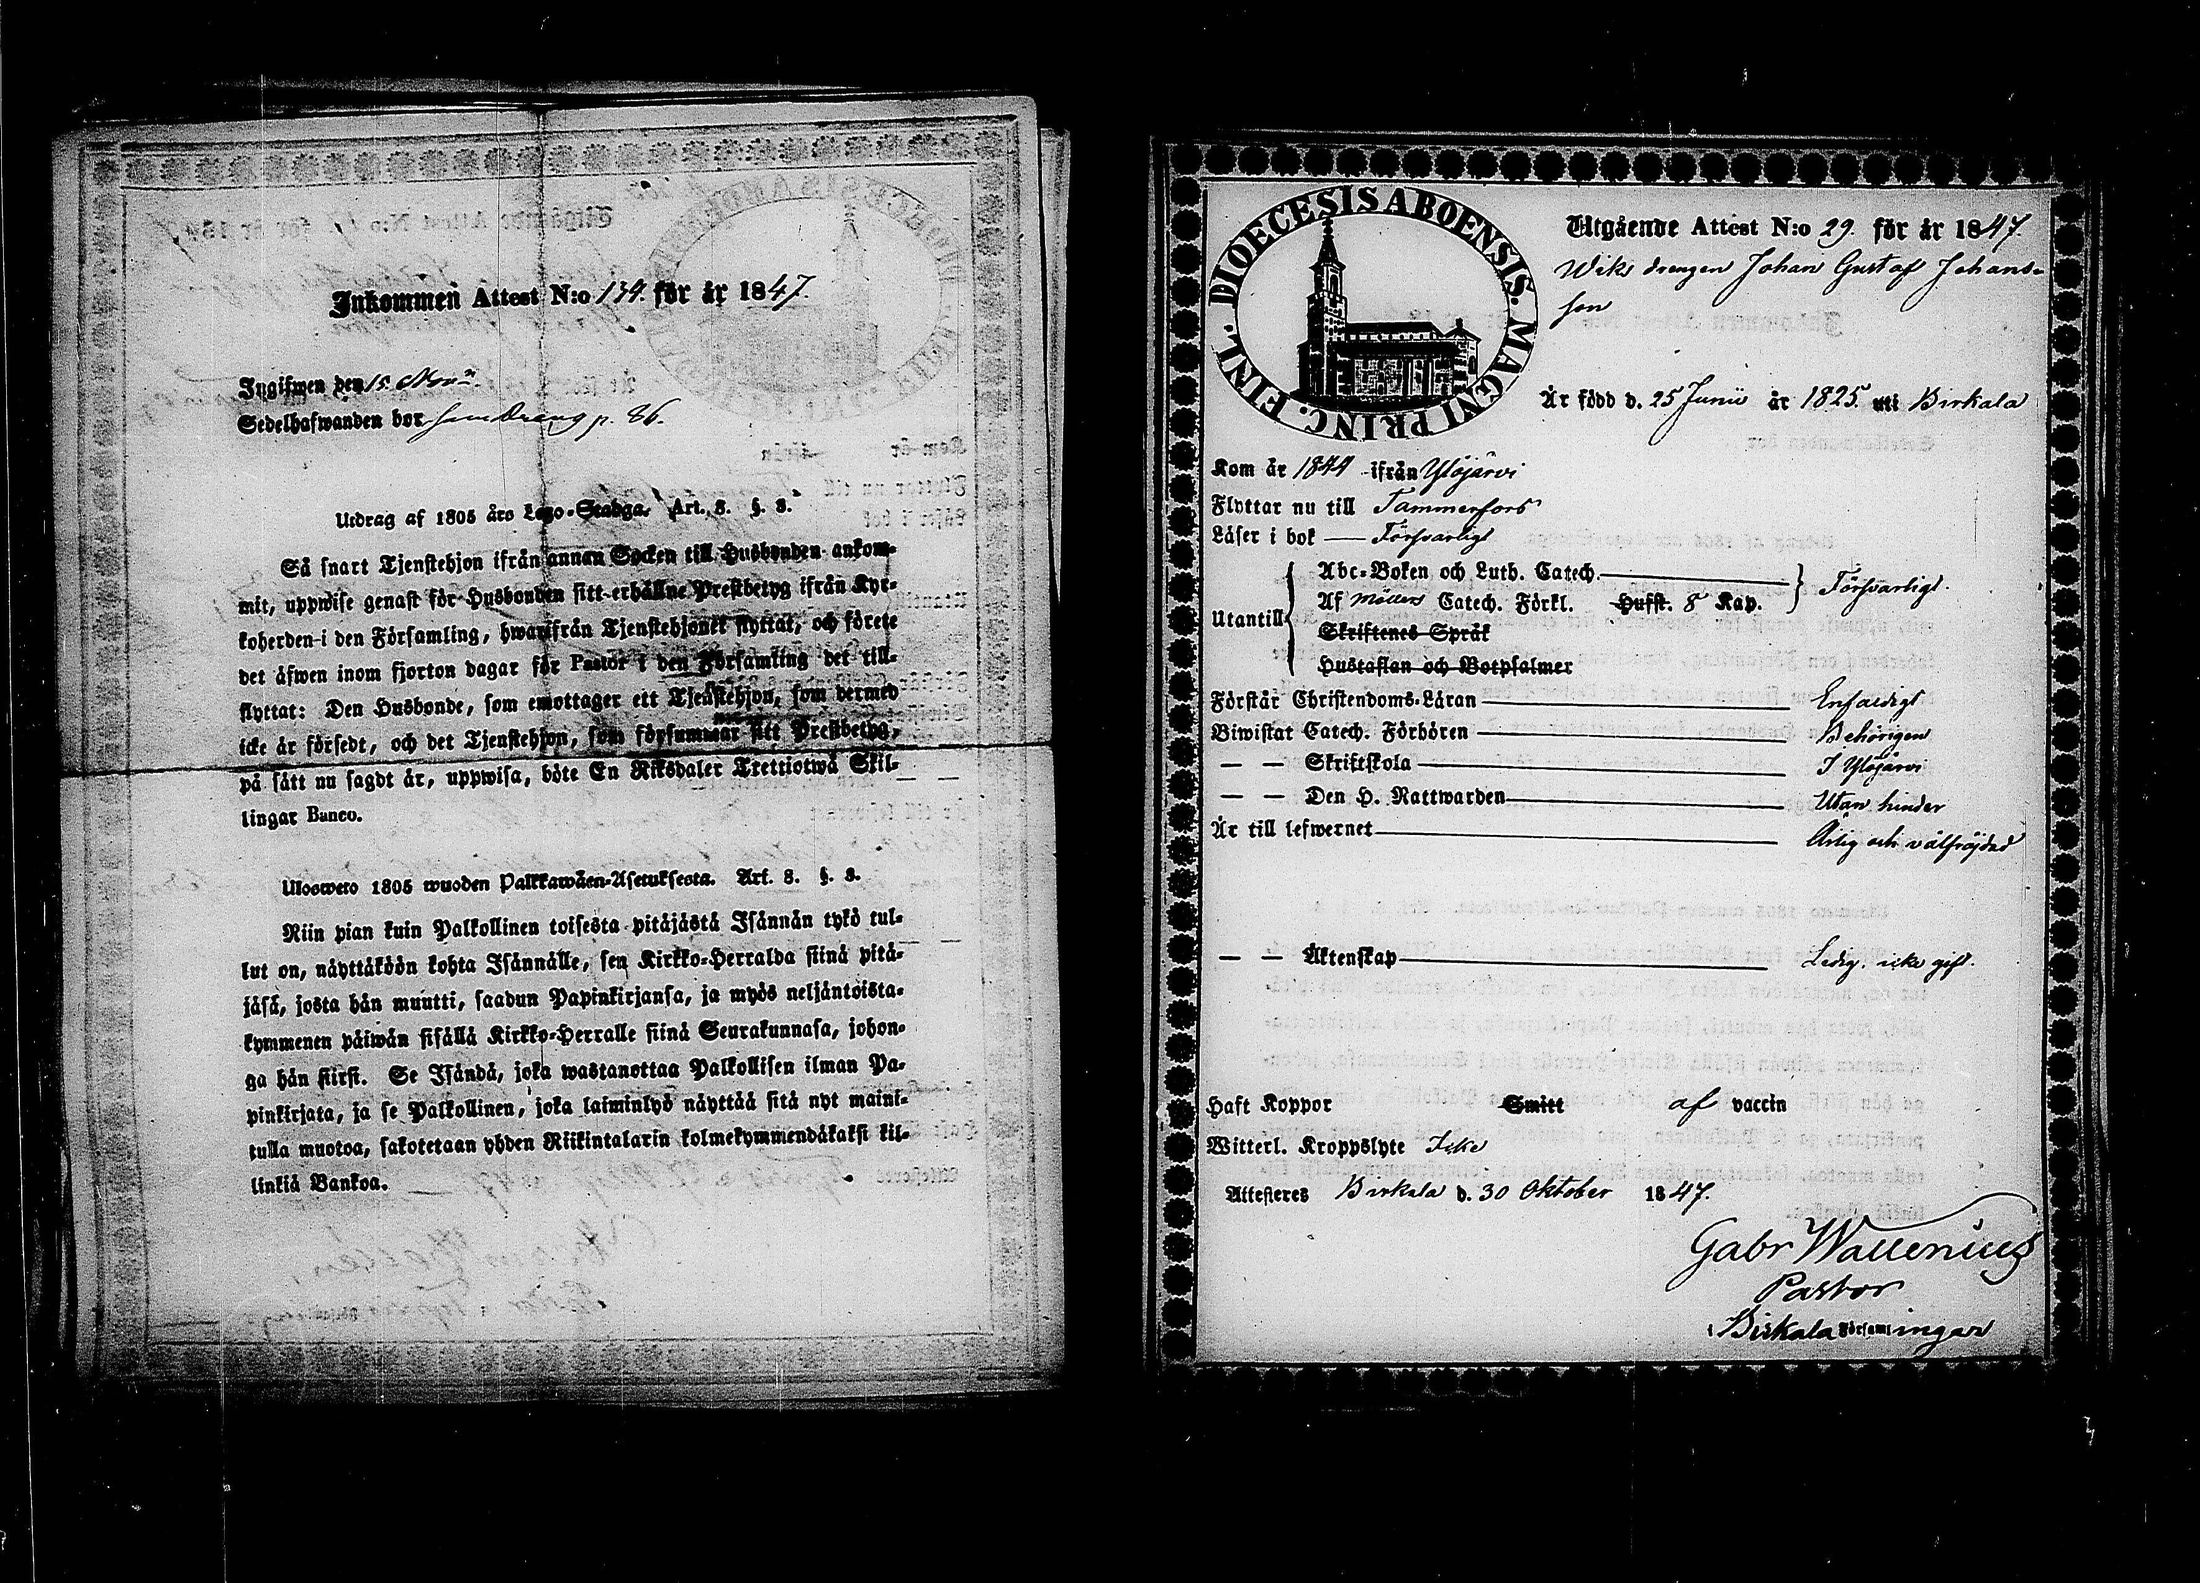 Inkommen Attest N:o 134. för år 1847.
Ingifwen den 15. Nov.
Sedelhafwanden bor som Dreng p. 86.
Utdrag af 1805 års Lego-Stadga. Art. 8. §. 3.
Så snart Tjenstehjon ifrån annan Socken till Husbonden ankom-
mit, uppwise genast för Husbonden sitt erhållne Prestbetyg ifrån Kyr-
koherden i den Församling, hwarifrån Tjenstehjonet flyttat, och förete
det äfwen inom fjorton dagar för Pastor i den Församling det till-
flyttat: Den Husbonde, som emottager ett Tjenstehjon, som dermed
icke är försedt, och det Tjenstehjon, som försummar sitt Prestbetyg,
på sätt nu sagdt är, uppwisa, böte En Riksdaler Trettiotwå Skil-
lingar Banco.
Ulosweto 1805 wuoden Palkkawäen-Asetuksesta. Art. 8. §. 3.
Niin pian kuin Palkollinen toisesta pitäjästä Isännän tykö tul-
lut on, näyttäköön kohta Isännälle, sen Kirkko-Herralda siinä pitä-
jäsä, josta hän muutti, saadun Papinkirjansa, ja myös neljäntoista-
kymmenen päiwän sisällä Kirkko-Herralle siinä Seurakunnasa, johon-
ga hän siirsi. Se Isändä, joka wastanottaa Palkollisen ilman Pa-
pinkirjata, ja se Palkollinen, joka laiminlyö näyttää sitä nyt maini-
tulla muotoa, sakotetaan yhden Riikintalarin kolmekymmendäkaksi kil-
linkiä Bankoa.
DIOECESIS ABOENSIS. MAGNI PRINC. FINL.
Utgående Attest N:o 29. för år 1847.
Wiks drengen Johan Gustaf Johans-
son
Är född d. 25 Junii år 1825. uti Birkala
Kom år 1844 ifrån Ylöjärvi
Flyttar nu till Tammerfors
Läser i bok — Försvarligt
Utantill
Abc-Boken och Luth. Catech.
Af Möllers Catech. Förkl. Hufst. 8 Kap. Försvarligt.
Skriftenes Språk
Hustaflan och Botpsalmer
Förstår Christendoms-Läran Enfaldigt
Biwistat Catech. Förhören Behörigen
— — Skriftskola I Ylöjärvi
— — Den H. Nattwarden Utan hinder
Är till lefwernet Ärlig och välfrejdad
— — Äktenskap Ledig, icke gift.
Haft Koppor Smitt af vaccin
Witterl. Kroppslyte Icke
Attesteres Birkala d. 30 Oktober 1847.
Gabr Wallenius
Pastor
i Birkala Församlingar